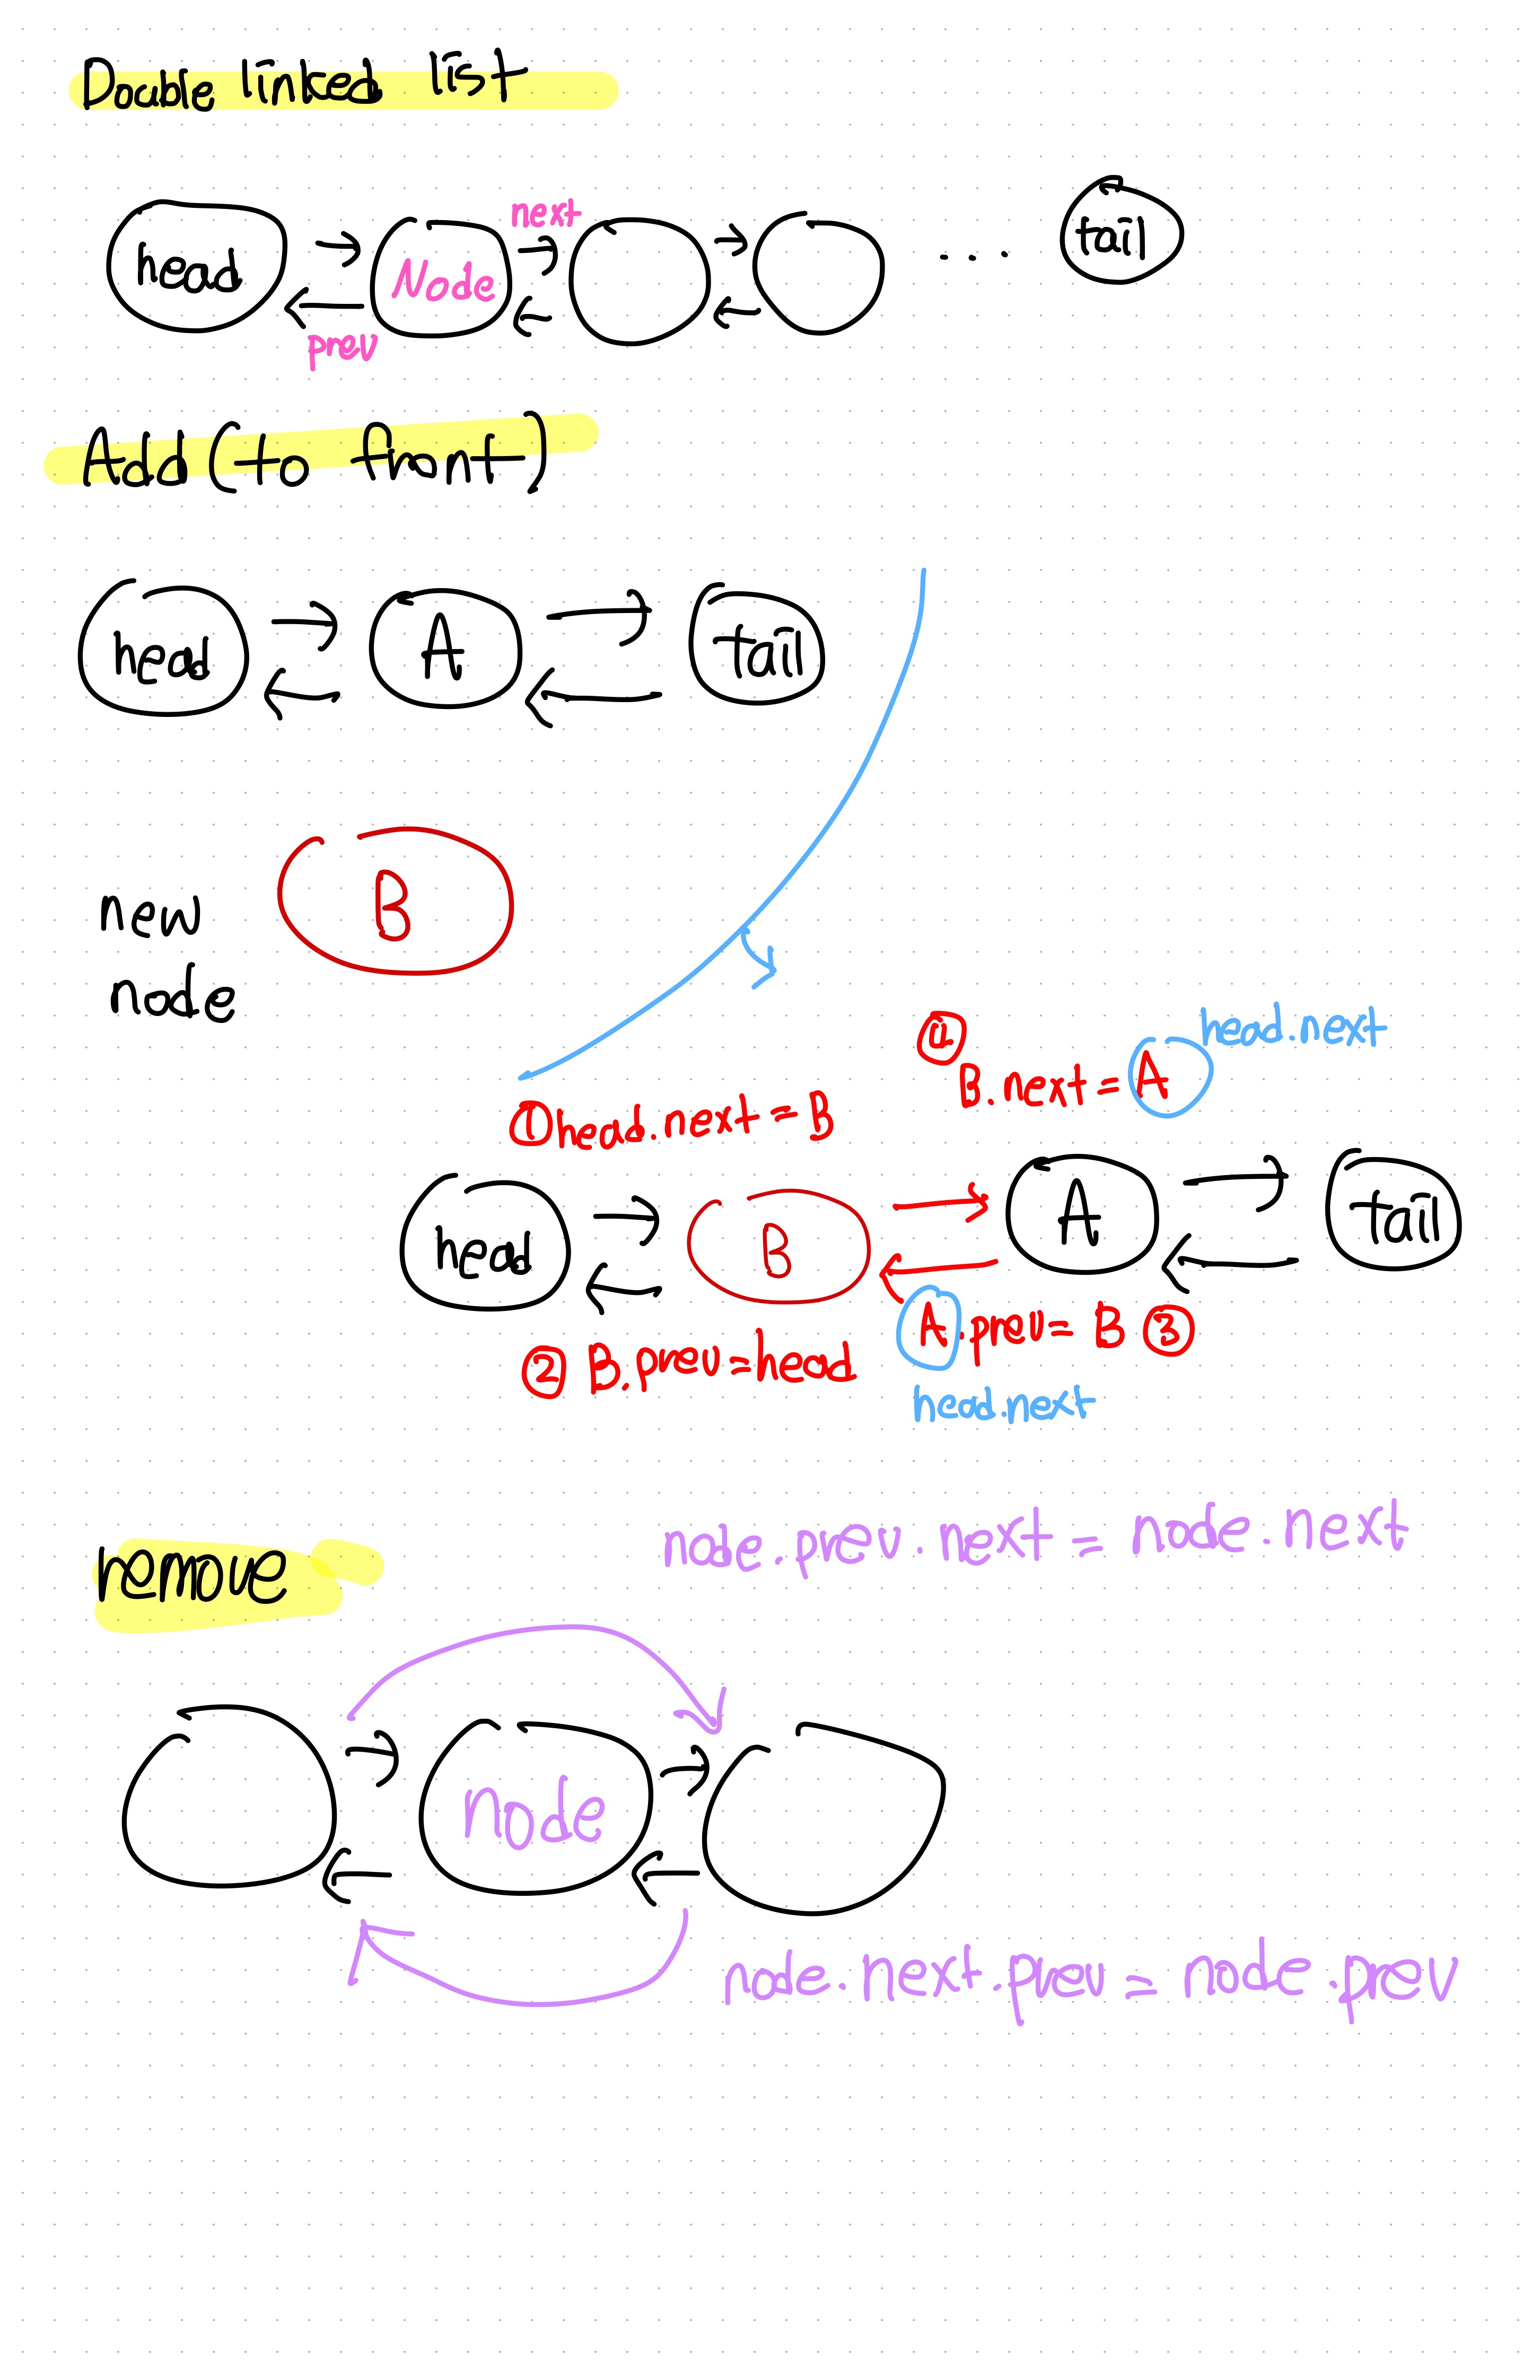 Double linked list
next
head Node tail
prev
Add (to front)
head A tail
B
new
node
④ head.next
B.next = A
① head.next = B
head B A tail
② B.prev = head A.prev = B ③
head.next
remove node.prev.next = node.next
node
node.next.prev = node.prev